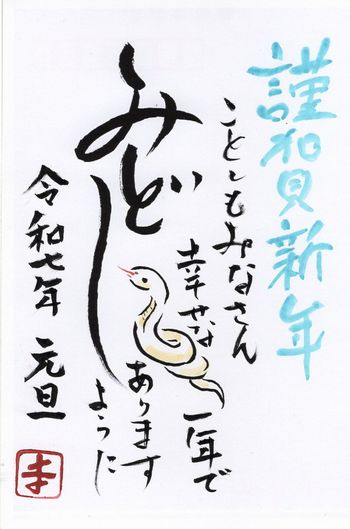 謹賀新年
ことしもみなさん
幸せな
一年で
あります
ように
みどし
令和七年 元旦